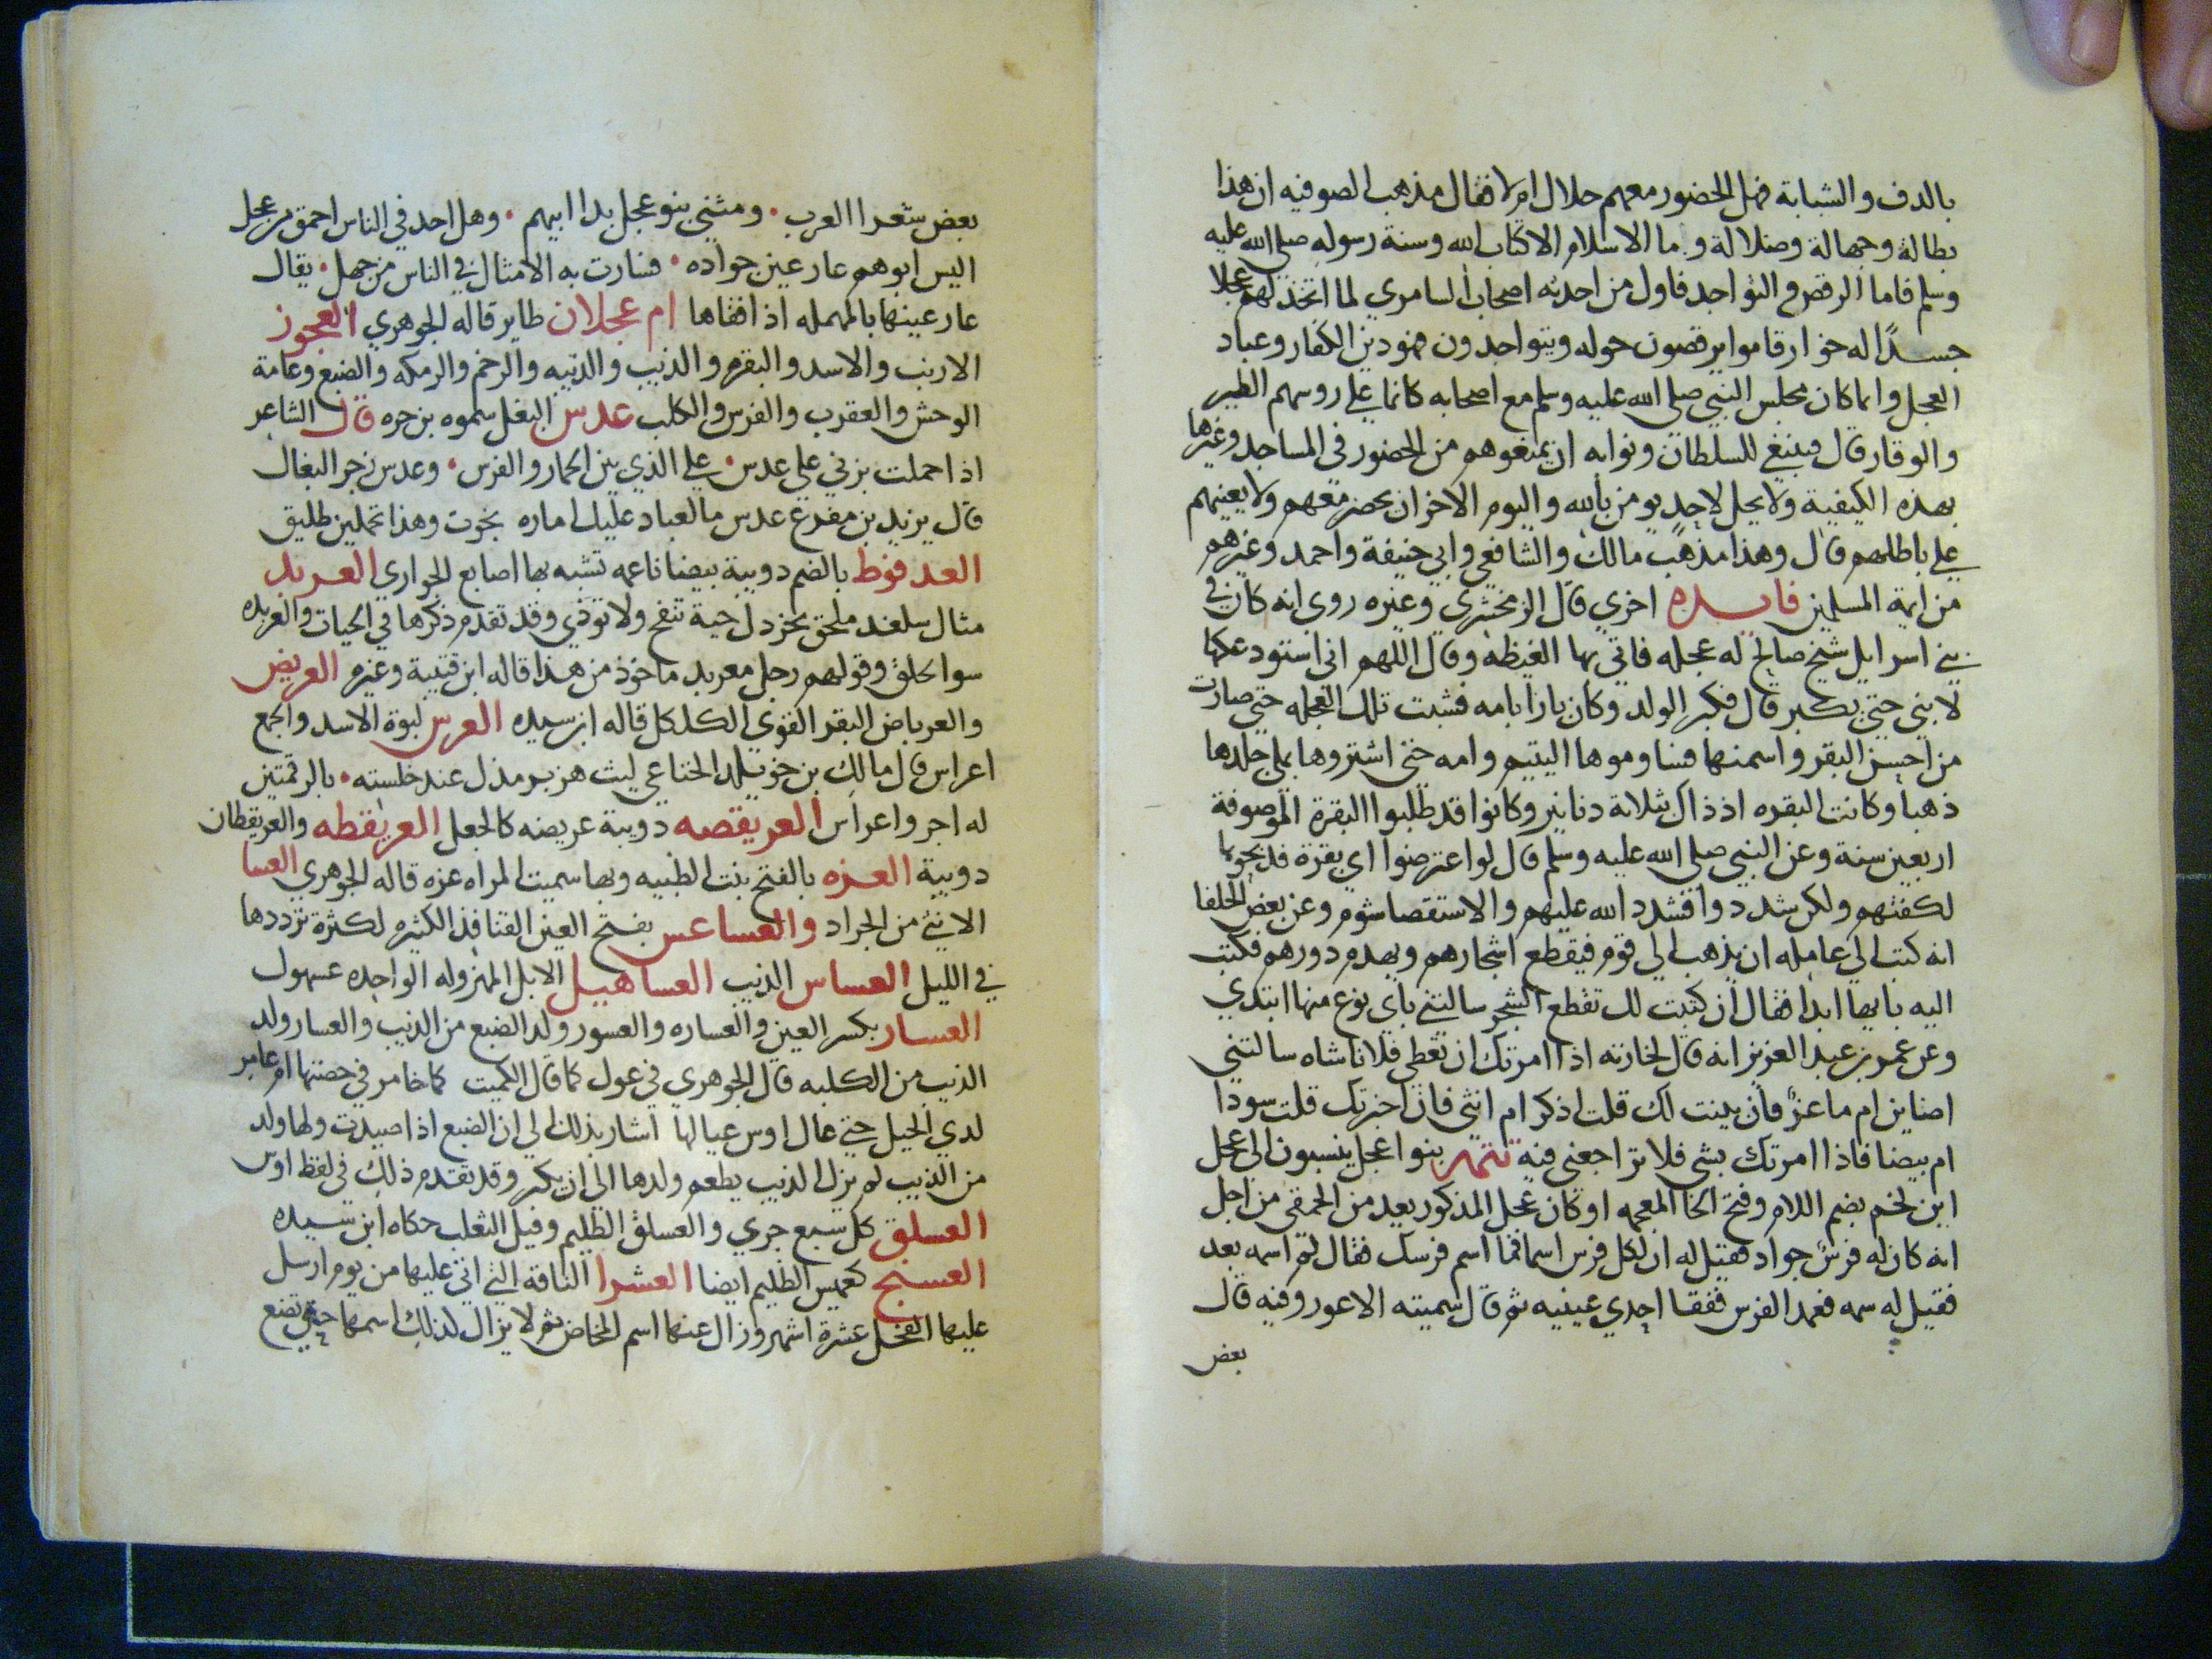 بالدف والشبابة فهل الحضور معهم حلال ام لا فقال مذهب الصوفيه ان هذا
بطالة وجهالة وضلالة وما الاسلام الا كتاب الله وسنة رسوله صلى الله عليه
وسلم فاما الرقص والتواجد فاول من احدثه اصحاب السامري لما اتخذ لهم عجلا
جسدا له خوار قاموا يرقصون حوله ويتواجدون فهو دين الكفار وعباد
العجل وانما كان مجلس النبي صلى الله عليه وسلم مع اصحابه كانما على روسهم الطير
والوقار قال فينبغي للسلطان ونوابه ان يمنعوهم من الحضور في المساجد وغيرها
بهذه الكيفية ولا يحل لاحد يومن بالله واليوم الاخر ان يحضر معهم ولا يعينهم
على باطلهم قال وهذا مذهب مالك والشافعي وابي حنيفة واحمد وغيرهم
من ايمة المسلمين فايدة اخري قال الزمخشري وغيره روي انه كان في
بني اسرايل شيخ صالح له عجله فاتي بها الغيظه وقال اللهم اني استودعكها
لابني حتي يكبر قال فكبر الولد وكان بارا بامه فشبت تلك العجله حتي صارت
من احسن البقر واسمنها فساوموها اليتيم وامه حتي اشتروها بملى جلدها
ذهبا وكانت البقره اذ ذاك بثلاثة دنانير وكانوا قد طلبوا البقرة الموصوفة
اربعين سنة وعن النبي صلى الله عليه وسلم قال لو اعترضوا اي بقرة فذبحوها
لكفتهم ولكن شددوا فشدد الله عليهم والاستقصا شوم وعن بعض الخلفا
انه كتب الي عامله ان يذهب الي قوم فيقطع اشجارهم ويهدم دورهم فكتب
اليه بايها ابدا فقال ان كتبت لك تقطع الشجر سالتني باي نوع منها ابتدي
وعن عمر بن عبد العزيز انه قال لخازنه اذا امرتك ان تعطي فلانا شاه سالتني
اضاين ام ماعز فان بينت لك قلت اذكر ام انثي فان اخبرتك قلت سودا
ام بيضا فاذا امرتك بشي فلا تراجعني فيه تتمه بنوا عجل ينسبون الي عجل
ابن لخم بضم اللام وفتح الخا المعجمه اوكان عجل المذكور يعد من الحمقي من اجل
انه كان له فرس جواد فقيل له ان لكل فرس اسما فما اسم فرسك فقال لم اسمه بعد
فقيل له سمه فعمد الفرس ففقا احدي عينيه ثم قال سميته الاعور وفيه قال
بعض
بعض شعرا العرب • ومثني بنو عجل بدا ابيهم • وهل احد في الناس احمق من عجل
اليس ابوهم عار عين جواده • فسارت به الامثال في الناس من جهل • يقال
عار عينها بالمهمله اذا فقاها ام عجلان طاير قاله الجوهري العجوز
الارنب والاسد والبقره والذيب والذيبه والرخم والرمكه والضبع وعامة
الوحش والعقرب والفرس والكلب عدس البغل سموه بزجره قال الشاعر
اذا حملت بزتي على عدس • علي الذي بين الحمار والفرس • وعدس زجر البغال
قال يزيد بن مفرغ عدس ما لعباد عليك اماره نجوت وهذا تحملين طليق
العدفوط بالضم دويبة بيضا ناعمه تشبه بها اصابع الجواري العربد
مثال سلغد ملحق بجردحل حية تنفخ ولا توذي وقد تقدم ذكرها في الحيات والعربده
سوا الخلق وقولهم رجل معربد ماخوذ من هذا قاله ابن قتيبة وغيره العربض
والعرباض البقر القوي الكلكل قاله ابن سيده العرس لبوة الاسد والجمع
اعراس قال مالك بن خويلد الخناعي ليث هزبر مدل عند خلسته • بالرقمتين
له اجر واعراس العريقصه دويبة عريضه كالجعل العريقطه والعريقطان
دويبة العزه بالفتح بنت الظبيه وبها سميت المراه عزه قاله الجوهري العسا
الانثي من الجراد والعساعس بفتح العين القنافذ الكثيره لكثرة ترددها
في الليل العساس الذيب العساهيل الابل المهزوله الواحده عسهول
العسبار بكسر العين والعساره والعسور ولد الضبع من الذيب والعسار ولد
الذيب من الكلبه قال الجوهري في عول كما قال الكميت كما خامر في حضنها ام عامر
لدي الحيل حتي عال اوس عيالها اشار بذلك الي ان الضبع اذا صيدت ولها ولد
من الذيب لم يزل الذيب يطعم ولدها الي ان يكبر وقد تقدم ذلك في لفظ اوس
العسلق كل سبع جري والعسلق الظليم وقيل الثعلب حكاه ابن سيده
العسنج كعملس الظليم ايضا العشرا الناقه التي اتي عليها من يوم ارسل
عليها الفحل عشرة اشهر وزال عنها اسم المخاض ثم لا يزال لذلك اسمها حتي تضع